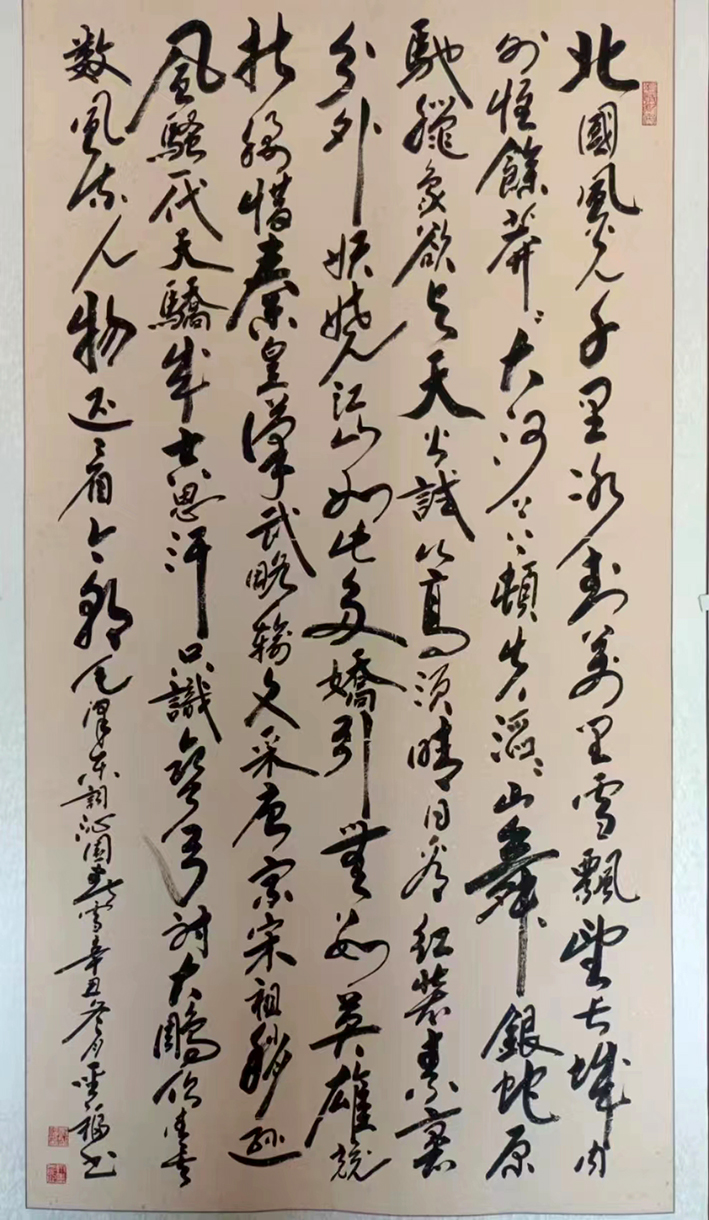 北國風光千里冰封萬里雪飄望長城內
外惟餘莽々大河上下頓失滔々山舞銀蛇原
馳臘象欲與天公試比高須晴日看紅裝素裹
分外妖嬈江山如此多嬌引無數英雄競
折腰惜秦皇漢武略輸文采唐宗宋祖稍遜
風騷一代天驕成吉思汗只識彎弓射大鵰俱往矣
數風流人物還看今朝毛澤東詞沁園春雪辛丑冬月福書